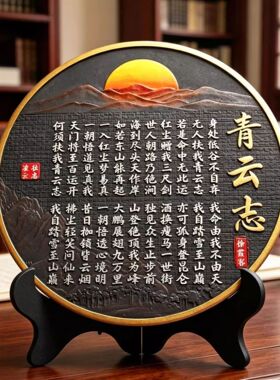 青云志
徐霞客
身处低谷不自弃
我命由我不由天
无人扶我青云志
我自踏雪至山巅
若是命中无此运
亦可孤身登昆仑
红尘赠我三尺剑
酒换瘦马一世街
世人朝路乃山涧
独见众生止步前
海到尽头天作岸
山登绝顶我为峰
如若东山能再起
大鹏展翅九万里
一入红尘梦易真
一朝悟透心境明
一朝悟道见真我
昔日枷锁皆云烟
天门将至百运开
拂尘轻笑问仙来
何须扶我青云志
我自踏雪至山巅
壮志
凌云